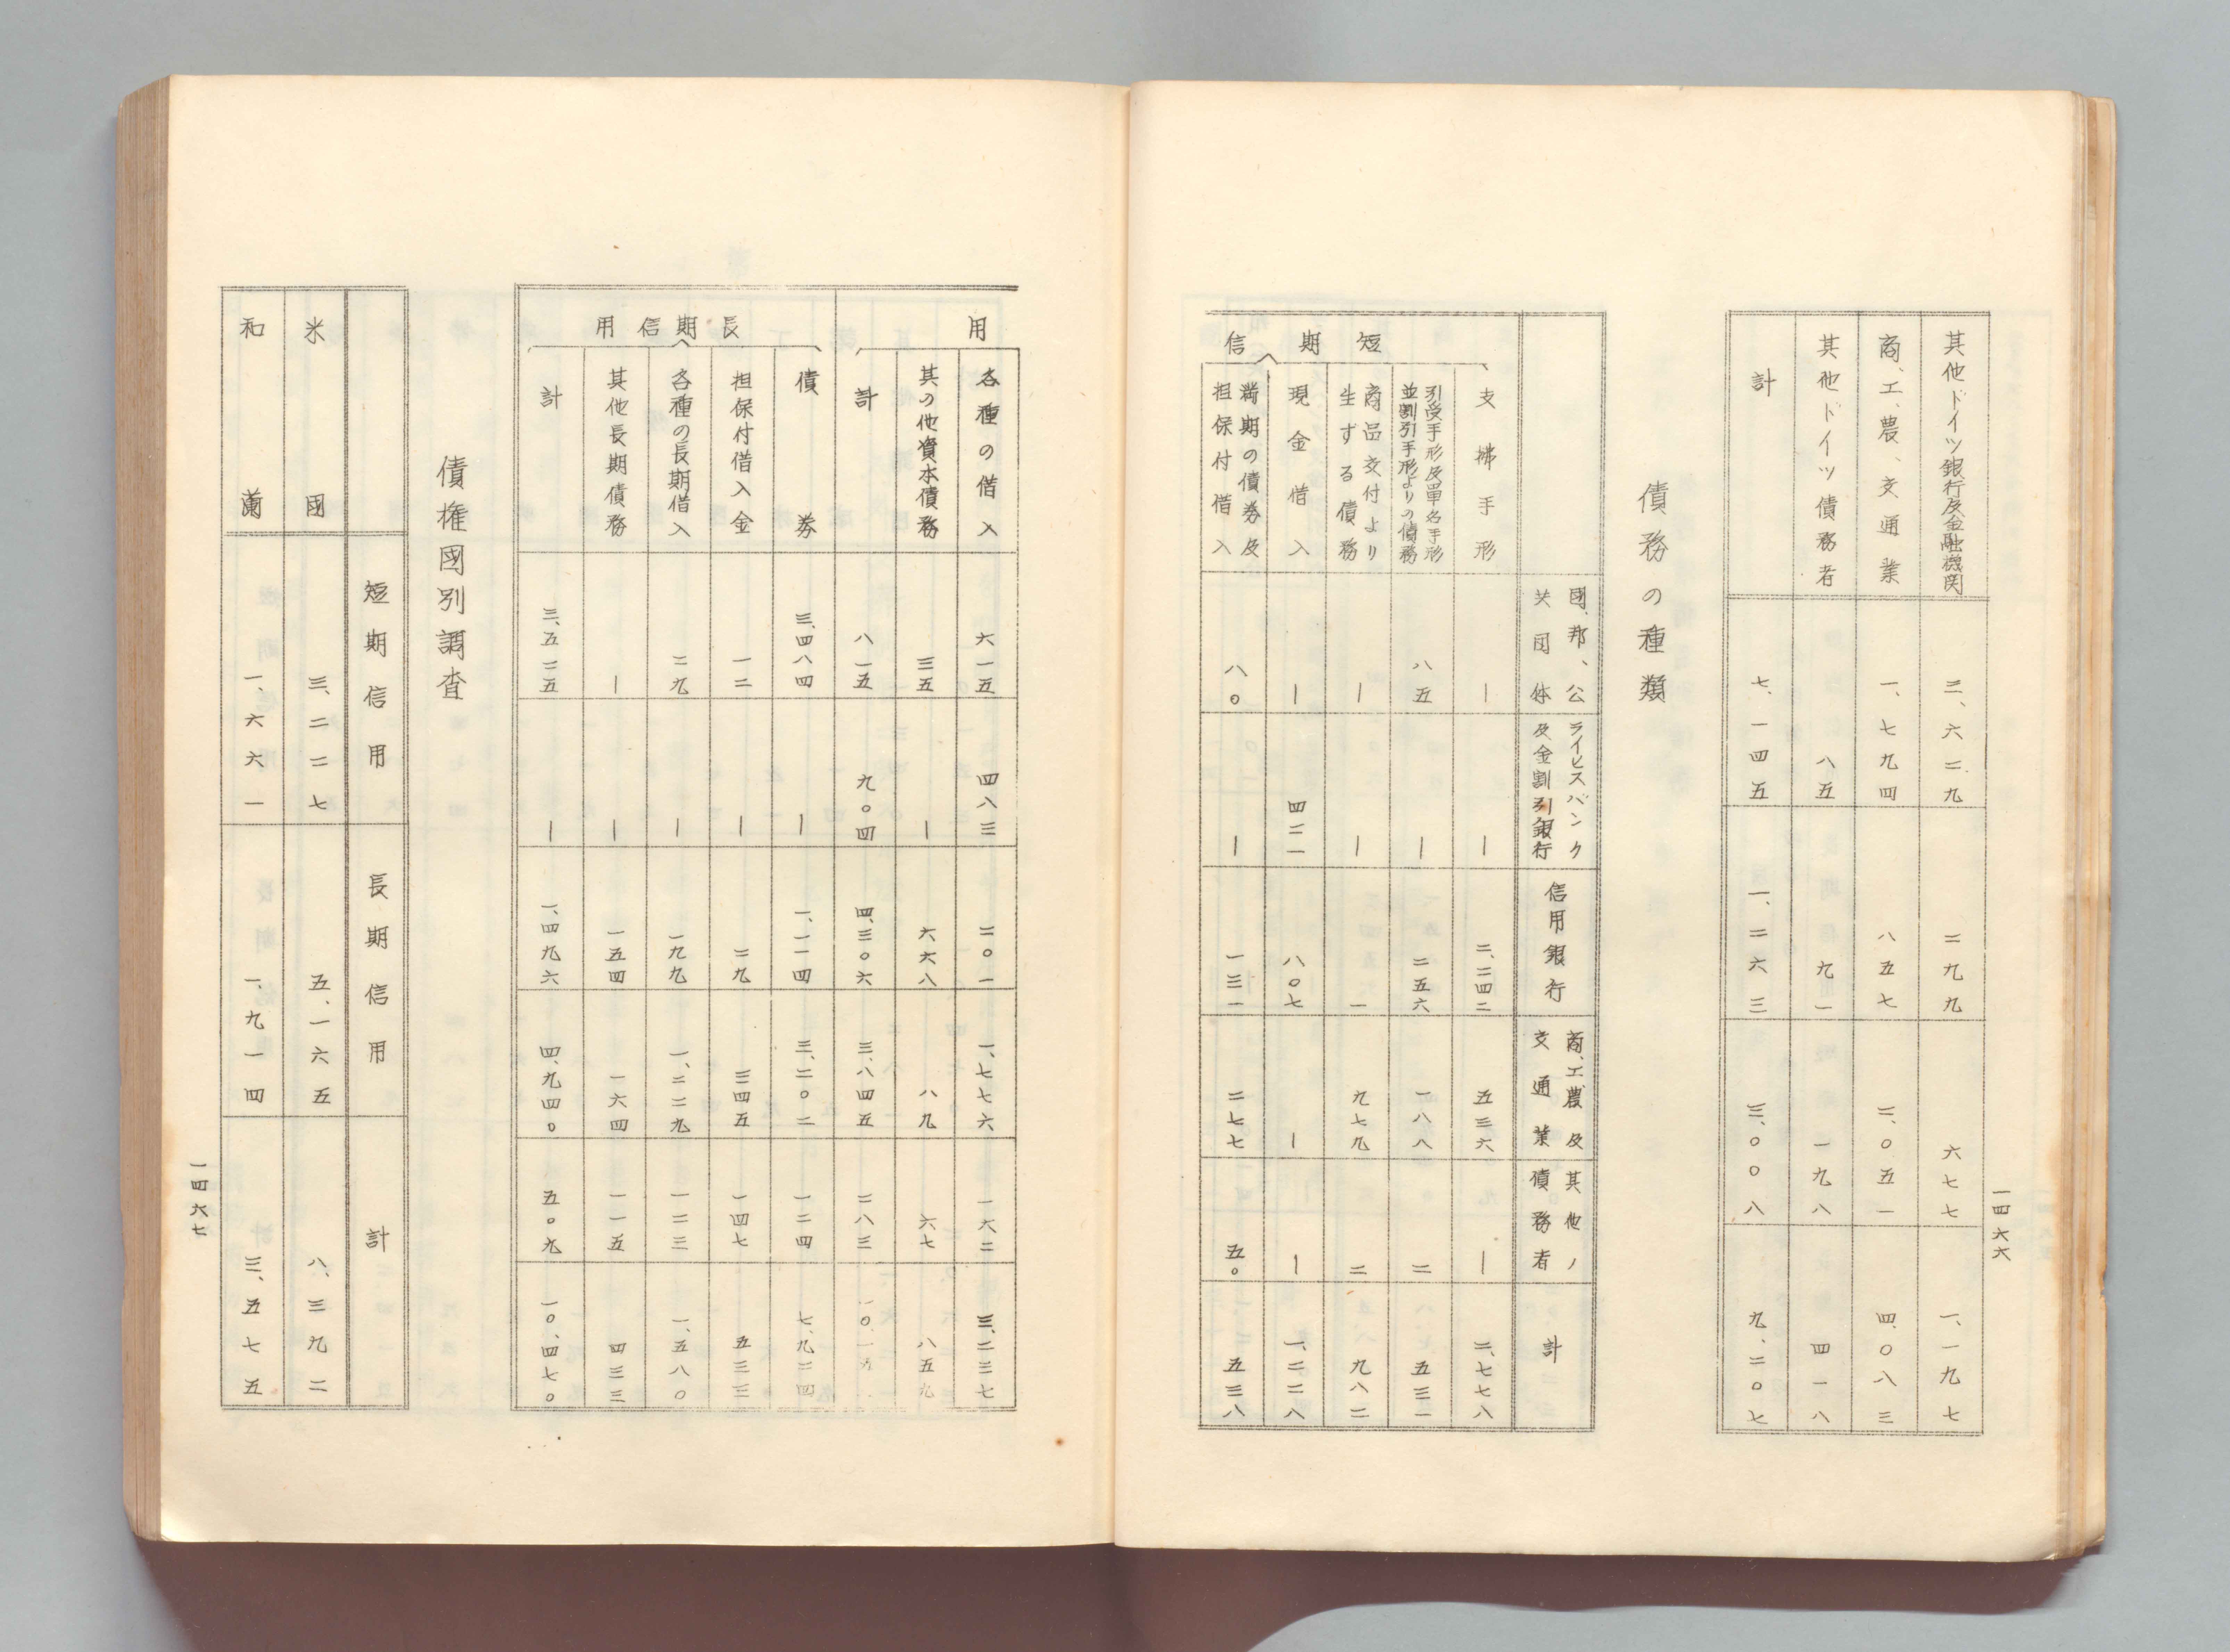 一四六六
其他ドイツ銀行及金融機関 二、六二九 二九九 六七七 一、一九七
商、工、農、交通業 一、七九四 八五七 二、〇五一 四、〇八三
其他ドイツ債務者 八五 九一 一九八 四一八
計 七、一四五 一、二六三 三、〇〇八 九、二〇七
債務の種類
國、邦、公共団体 ライヒスバンク及金割引銀行 信用銀行 商、工、農及交通業 其他ノ債務者 計
短期信
支拂手形 — — 二、二四二 五三六 — 二、七七八
引受手形及單名手形並割引手形よりの債務 八五 — 二五六 一八八 二 五三一
商品交付より生ずる債務 — — 一 九七九 二 九八二
現金借入 — 四二一 八〇七 — — 一、二二八
満期の債券及担保付借入 八〇 — 一三一 二七七 五〇 五三八
用
各種の借入 六一五 四八三 二〇一 一、七七六 一六二 三、二三七
其の他資本債務 三五 — 六六八 八九 六七 八五九
計 八一五 九〇四 四、三〇六 三、八四五 二八三 一〇、一五
長期信用
債券 三、四八四 — 一、一一四 三、二〇二 一二四 七、九二四
担保付借入金 一二 — 二九 三四五 一四七 五三三
各種の長期借入 二九 — 一九九 一、二二九 一二三 一、五八〇
其他長期債務 — — 一五四 一六四 一一五 四三三
計 三、五二五 — 一、四九六 四、九四〇 五〇九 一〇、四七〇
債権國別調査
短期信用 長期信用 計
米國 三、二二七 五、一六五 八、三九二
和蘭 一、六六一 一、九一四 三、五七五
一四六七